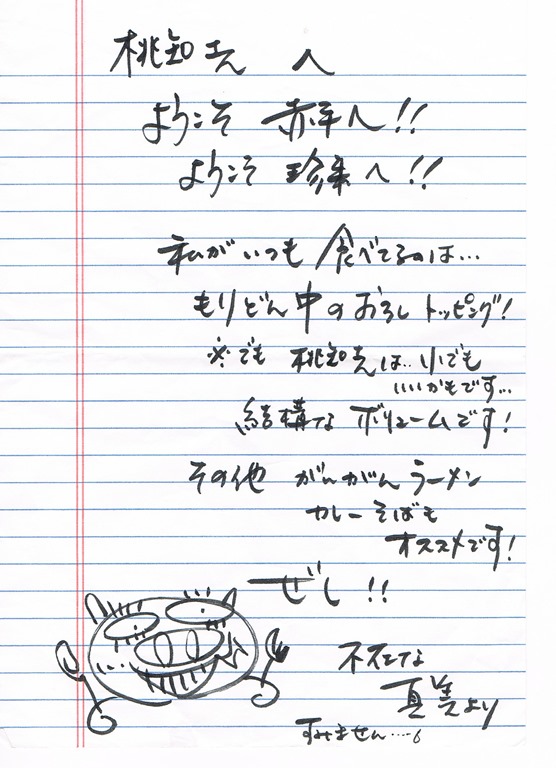 桃知さんへ
ようこそ 赤平へ!!
ようこそ 珍来へ!!
私がいつも 食べてるのは…
もりどん中の おろし トッピング!
※でも 桃知さんは‥小でも
いいかもです…
結構な ボリュームです!
その他 がんがん ラーメン
カレーそばも
オススメです!
ぜひ!!
不在な
真美より
すみません…。